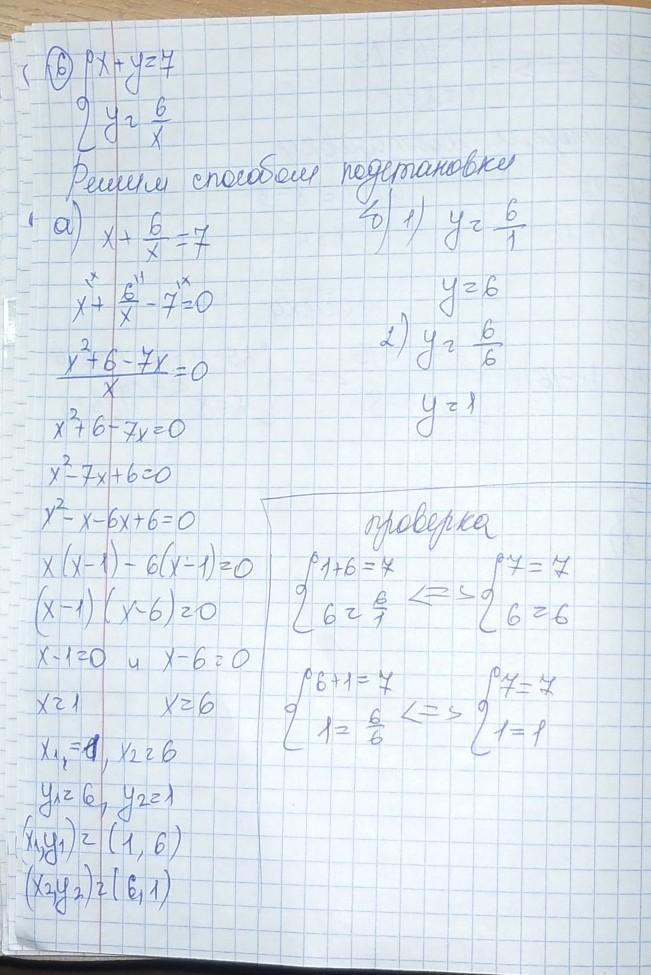 6 { x+y=7
{ y= 6/x
Решим способом подстановки
а) x + 6/x = 7
x\x + 6/x\1 - 7\x = 0
(x²+6-7x)/x = 0
x²+6-7x=0
x²-7x+6=0
x²-x-6x+6=0
x(x-1)-6(x-1)=0
(x-1)(x-6)=0
x-1=0 и x-6=0
x=1 x=6
x₁=1, x₂=6
y₁=6, y₂=1
(x₁,y₁)=(1,6)
(x₂y₂)=(6,1)
б) 1) y= 6/1
y=6
2) y= 6/6
y=1
проверка
{ 1+6=7 <=> { 7=7
{ 6= 6/1 { 6=6
{ 6+1=7 <=> { 7=7
{ 1= 6/6 { 1=1